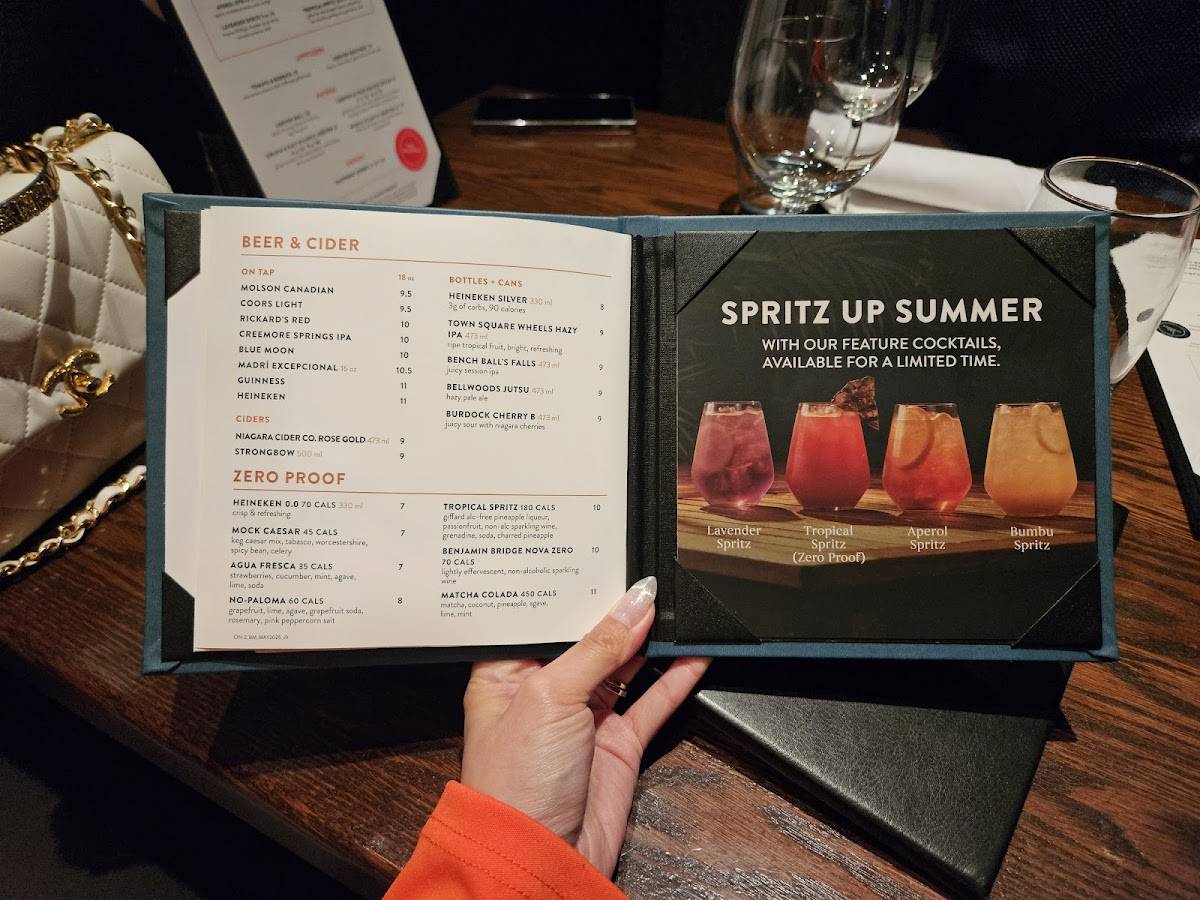 BEER & CIDER
ON TAP 18 oz
MOLSON CANADIAN 9.5
COORS LIGHT 9.5
RICKARD'S RED 10
CREEMORE SPRINGS IPA 10
BLUE MOON 10
MADRÍ EXCEPCIONAL 16 oz 10.5
GUINNESS 11
HEINEKEN 11
CIDERS
NIAGARA CIDER CO. ROSE GOLD 473 ml 9
STRONGBOW 500 ml 9
BOTTLES + CANS
HEINEKEN SILVER 330 ml 8
3g of carbs, 90 calories
TOWN SQUARE WHEELS HAZY 9
IPA 473 ml
ripe tropical fruit, bright, refreshing
BENCH BALL'S FALLS 473 ml 9
juicy session ipa
BELLWOODS JUTSU 473 ml 9
hazy pale ale
BURDOCK CHERRY B 473 ml 9
juicy sour with niagara cherries
ZERO PROOF
HEINEKEN 0.0 70 CALS 330 ml 7
crisp & refreshing
MOCK CAESAR 45 CALS 7
keg caesar mix, tabasco, worcestershire,
spicy bean, celery
AGUA FRESCA 35 CALS 7
strawberries, cucumber, mint, agave,
lime, soda
NO-PALOMA 60 CALS 8
grapefruit, lime, agave, grapefruit soda,
rosemary, pink peppercorn salt
TROPICAL SPRITZ 180 CALS 10
giffard alc-free pineapple liqueur,
passionfruit, non-alc sparkling wine,
grenadine, soda, charred pineapple
BENJAMIN BRIDGE NOVA ZERO 10
70 CALS
lightly effervescent, non-alcoholic sparkling
wine
MATCHA COLADA 450 CALS 11
matcha, coconut, pineapple, agave,
lime, mint
SPRITZ UP SUMMER
WITH OUR FEATURE COCKTAILS,
AVAILABLE FOR A LIMITED TIME.
Lavender
Spritz
Tropical
Spritz
(Zero Proof)
Aperol
Spritz
Bumbu
Spritz